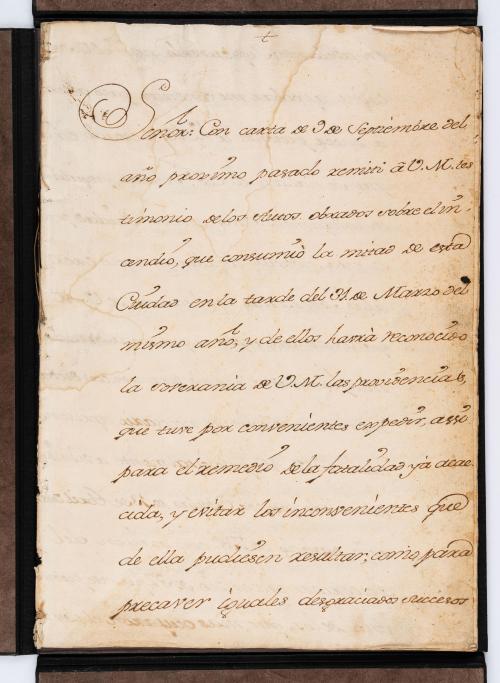 Señor: Con carta de 9 de Septiembre del
año proximo pasado remiti â V. M. tes
timonio delos Autos obrados sobre el in-
cendio, que consumiò la mitad de esta
Ciudad en la tarde del 31. de Marzo del
mismo año, y de ellos havrà reconocido
la soverania de V. M. las providencias,
que tuve por convenientes expedir, assi
para el remedio de la fatalidad yà acae
cida, y evitar los inconvenientes que
de ella pudiesen resultar, como para
precaver iguales desgraciados sucesos